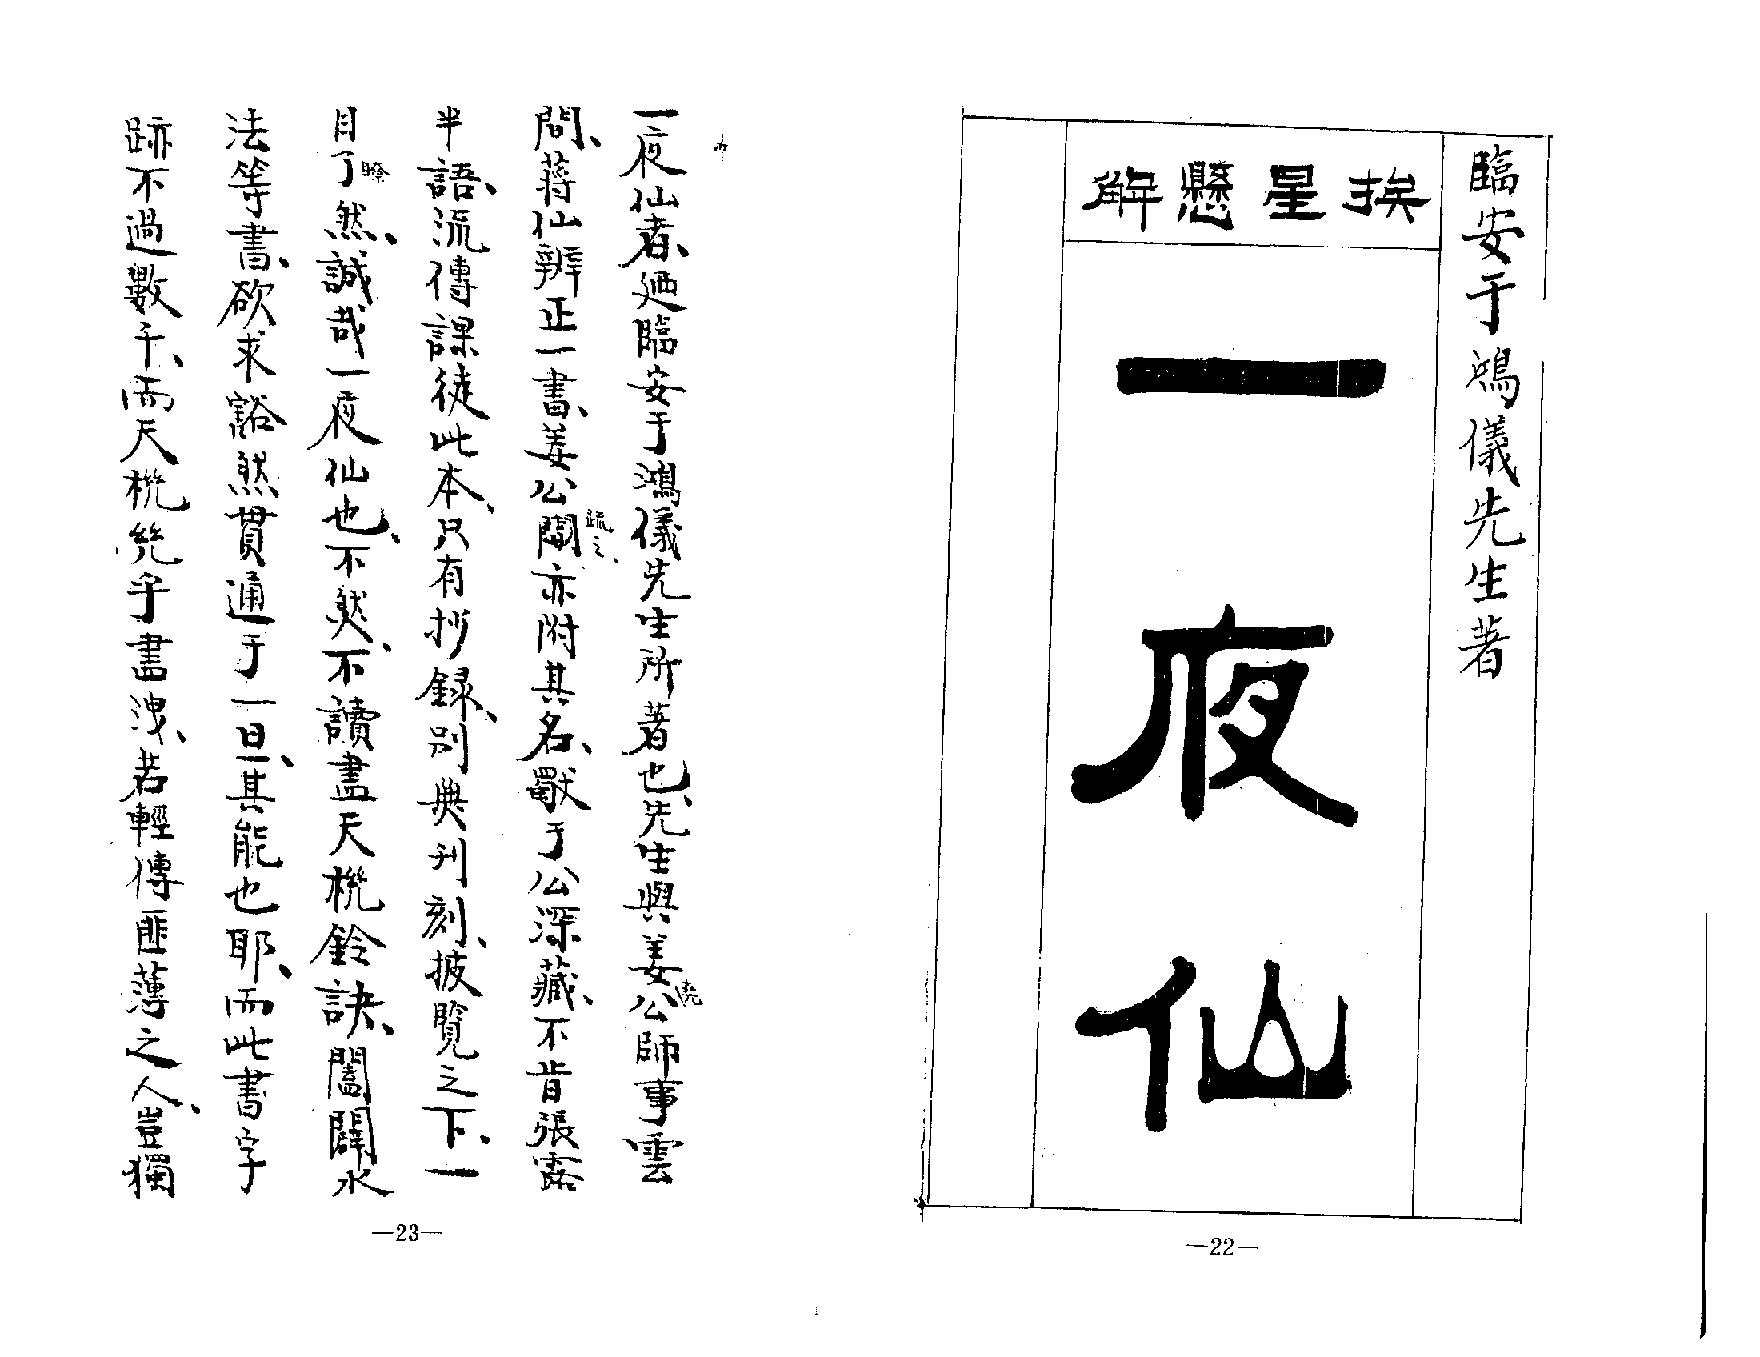 臨安于鴻儀先生著
挨星懸解
一夜仙
—22—
一夜仙者、廼臨安于鴻儀先生所著也、先生與姜公師事雲
問、蔣仙辨正一書、姜公闢亦附其名、獸于公深藏、不肯張露
疏之
半語、流傳課徒此本、只有抄録、別無刊刻、披覽之下、一
目了然、誠哉一夜仙也、不然、不讀盡天機鈴訣、闔闢水
瞭
法等書、欲求豁然貫通于一旦、其能也耶、而此書字
跡不過數千、而天機幾乎盡洩、若輕傳匪薄之人、豈獨
—23—